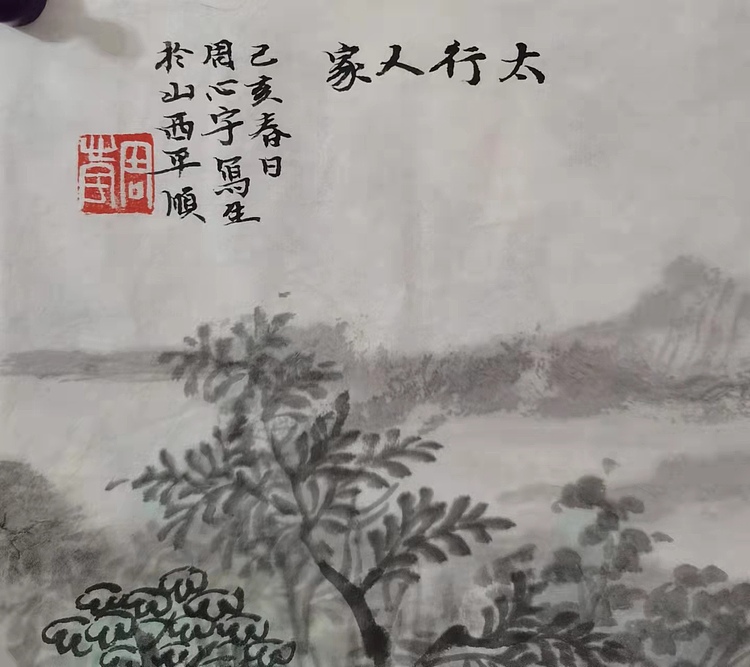 太行人家
己亥春日
周心宇寫生
於山西平順